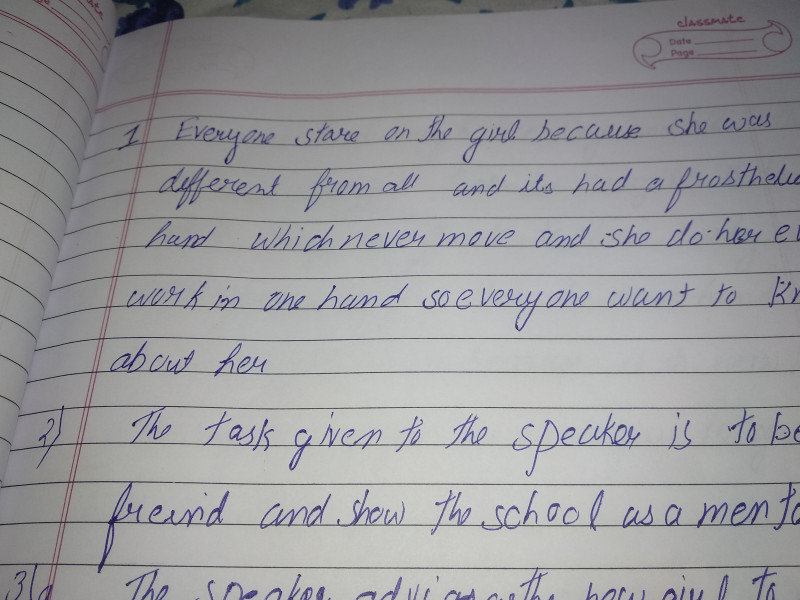 classmate
Date
Page
1 Everyone stare on the girl because she was
different from all and its had a
hand which never move and she do her
work in one hand so everyone want to
about her
2) The task given to the speaker is to be
freind and show the school as a
The speaker the girl to